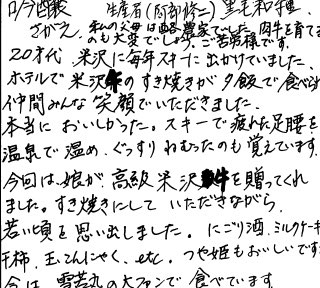 吟醸 生産者(阿部修二) 黒毛和種
さがえ、私の父母は酪農家でした。肉牛を育てる
のも大変でしょう。ご苦労様です。
20才代 米沢に毎年スキーに出かけていました。
ホテルで米沢牛のすき焼きが夕飯で食べられ
仲間みんな笑顔でいただきました。
本当においしかった。スキーで疲れた足腰を
温泉で温め、ぐっすりねむったのも覚えています。
今回は、娘が高級米沢牛を贈ってくれ
ました。すき焼きにしていただきながら
若い頃を思い出しました。にごり酒、ミルクケーキ
干柿、玉こんにゃく、etc. つや姫もおいしいです
今は 雪若丸の大ファンで食べています。